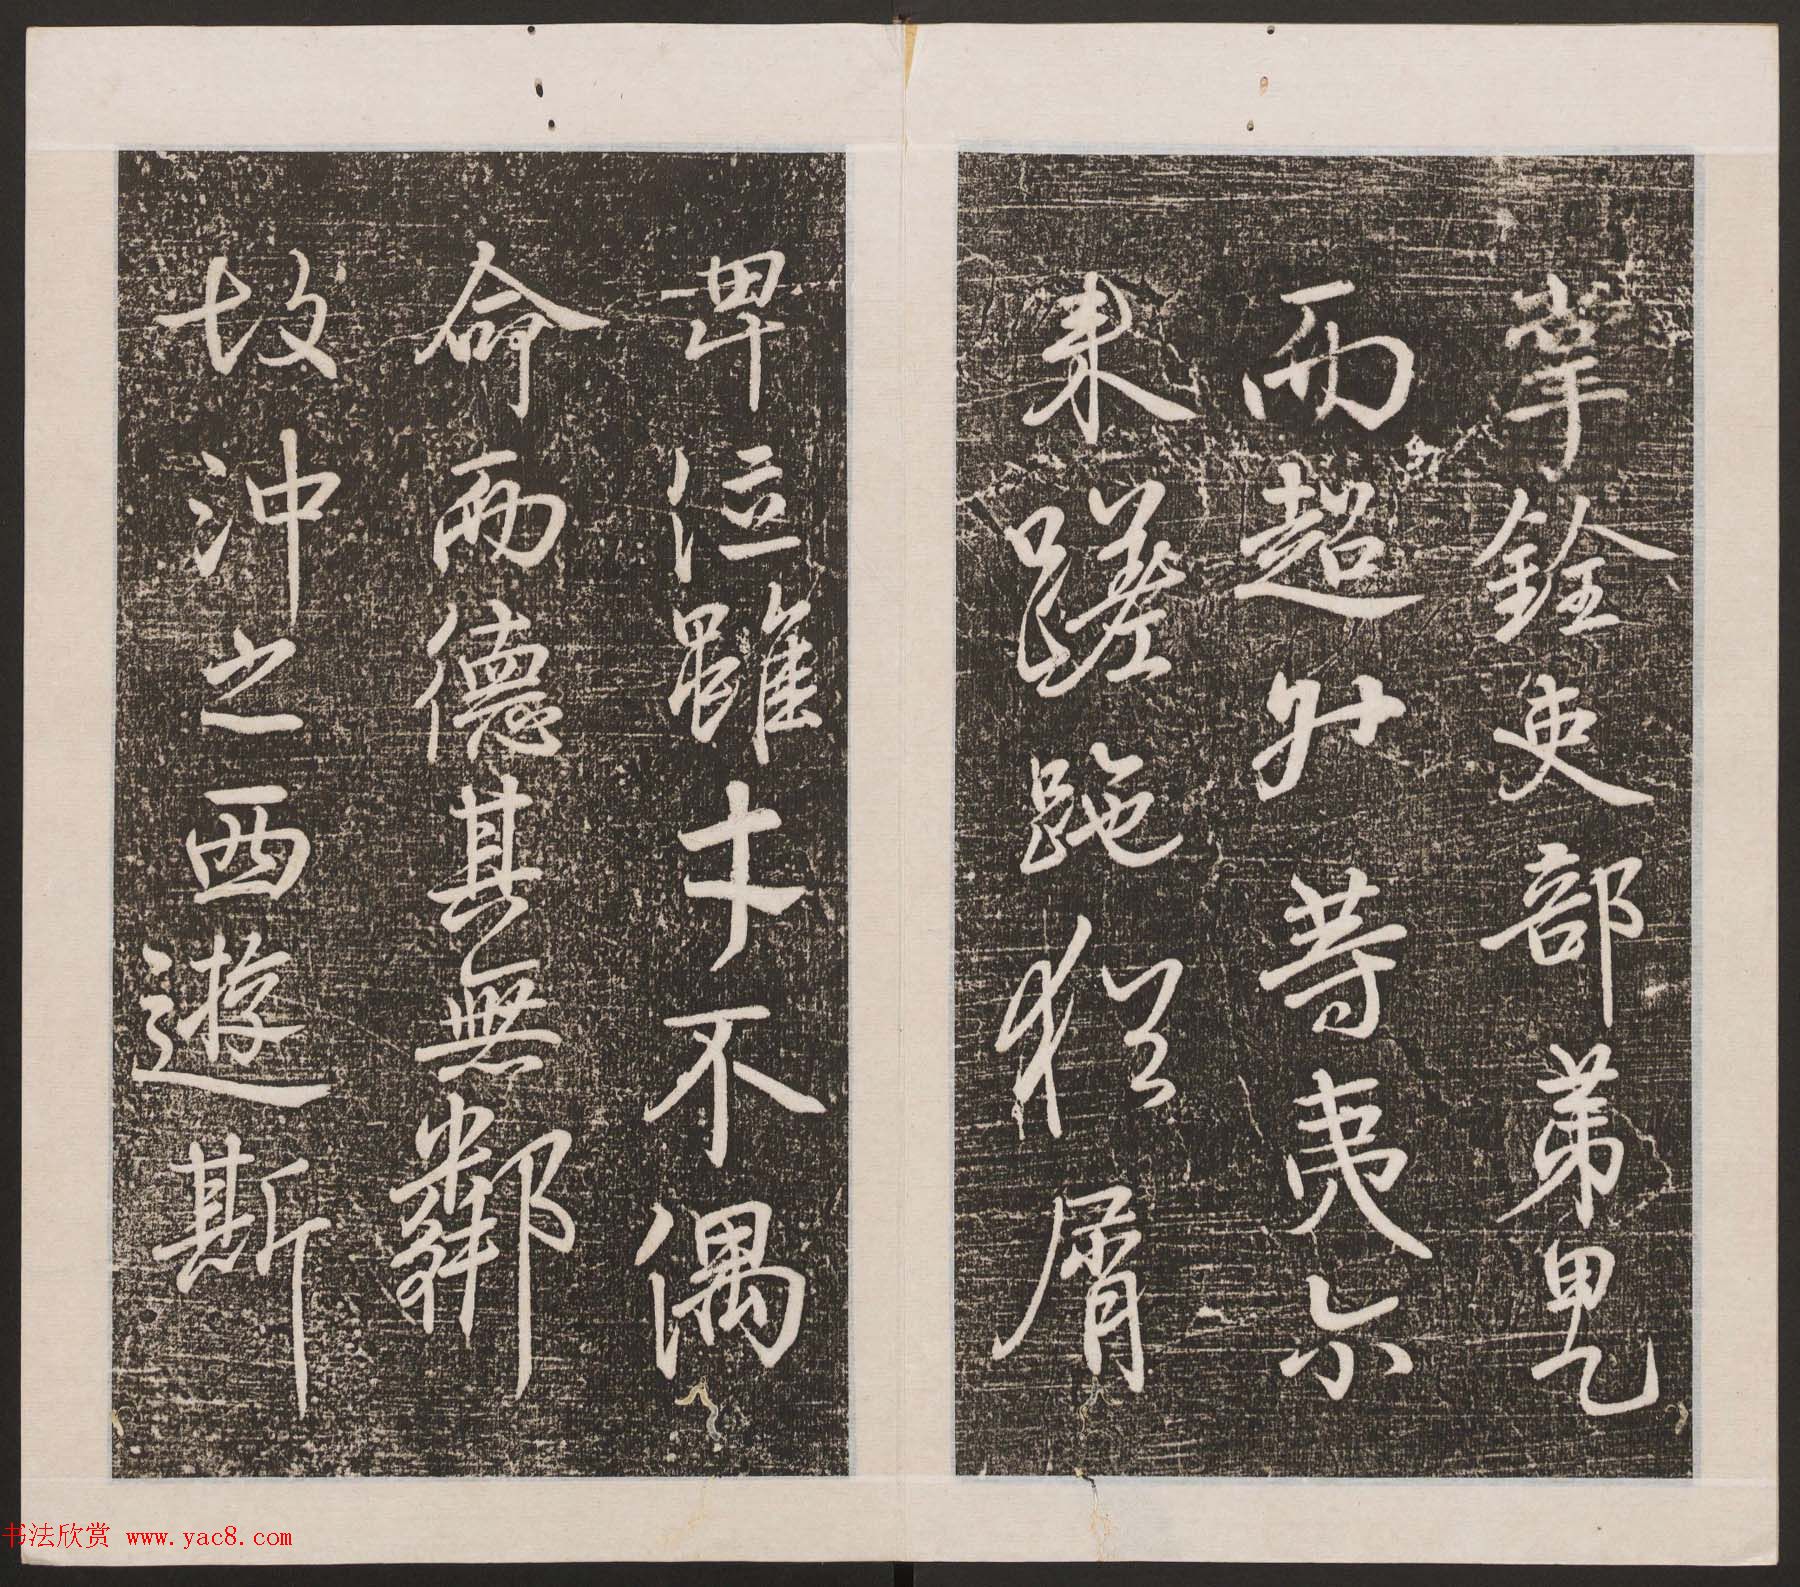 掌銓吏部弟甲乙
而超升等夷尔
来蹉跎猶屑
卑位雖才不偶
命而德其無鄰
故沖之西遊斯
书法欣赏 www.yac8.com